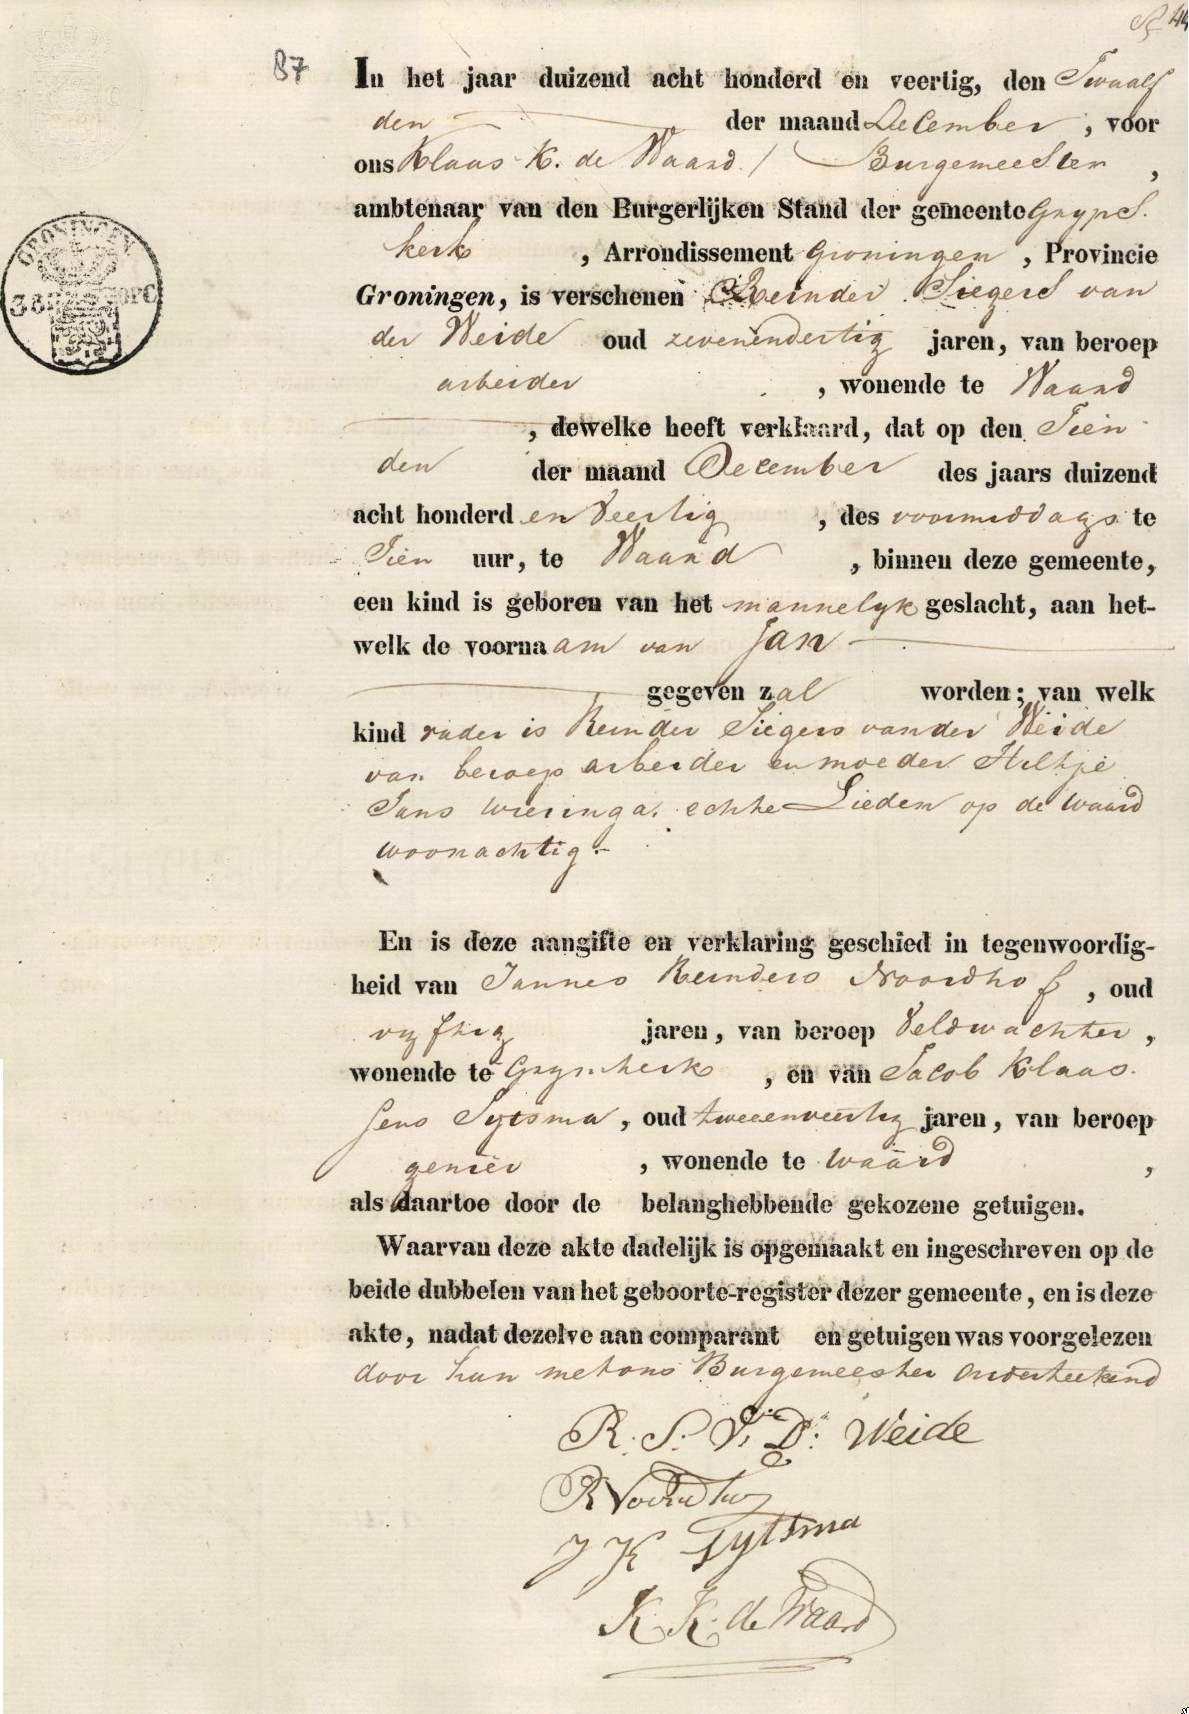 44
87
In het jaar duizend acht honderd en veertig, den Twaalf
den der maand December, voor
ons Klaas K. de Waard / Burgemeester,
ambtenaar van den Burgerlijken Stand der gemeente Gryps
kerk, Arrondissement Groningen, Provincie
GRONINGEN
Groningen, is verschenen Reinder Siegers van
der Weide oud zevenendertig jaren, van beroep
arbeider, wonende te Waard
, dewelke heeft verklaard, dat op den Tien
den der maand December des jaars duizend
acht honderd en Veertig, des voormiddags te
Tien uur, te Waard, binnen deze gemeente,
een kind is geboren van het mannelyk geslacht, aan het-
welk de voornaam van Jan
gegeven zal worden; van welk
kind vader is Reinder Siegers van der Weide
van beroep arbeider en moeder Hiltje
Jans Wieringa. echte Lieden op de Waard
woonachtig.-
En is deze aangifte en verklaring geschied in tegenwoordig-
heid van Jannes Reinders Noordhof, oud
vyftig jaren, van beroep Veldwachter,
wonende te Grypskerk, en van Jacob Klaas
sens Sytsma, oud tweeenveertig jaren, van beroep
wonende te Waard,
als daartoe door de belanghebbende gekozene getuigen.
Waarvan deze akte dadelijk is opgemaakt en ingeschreven op de
beide dubbelen van het geboorte-register dezer gemeente, en is deze
akte, nadat dezelve aan comparant en getuigen was voorgelezen
door hun met ons Burgemeester Onderteekend
R. S. V. D. Weide
J K Sytsma
K. K. de Waard